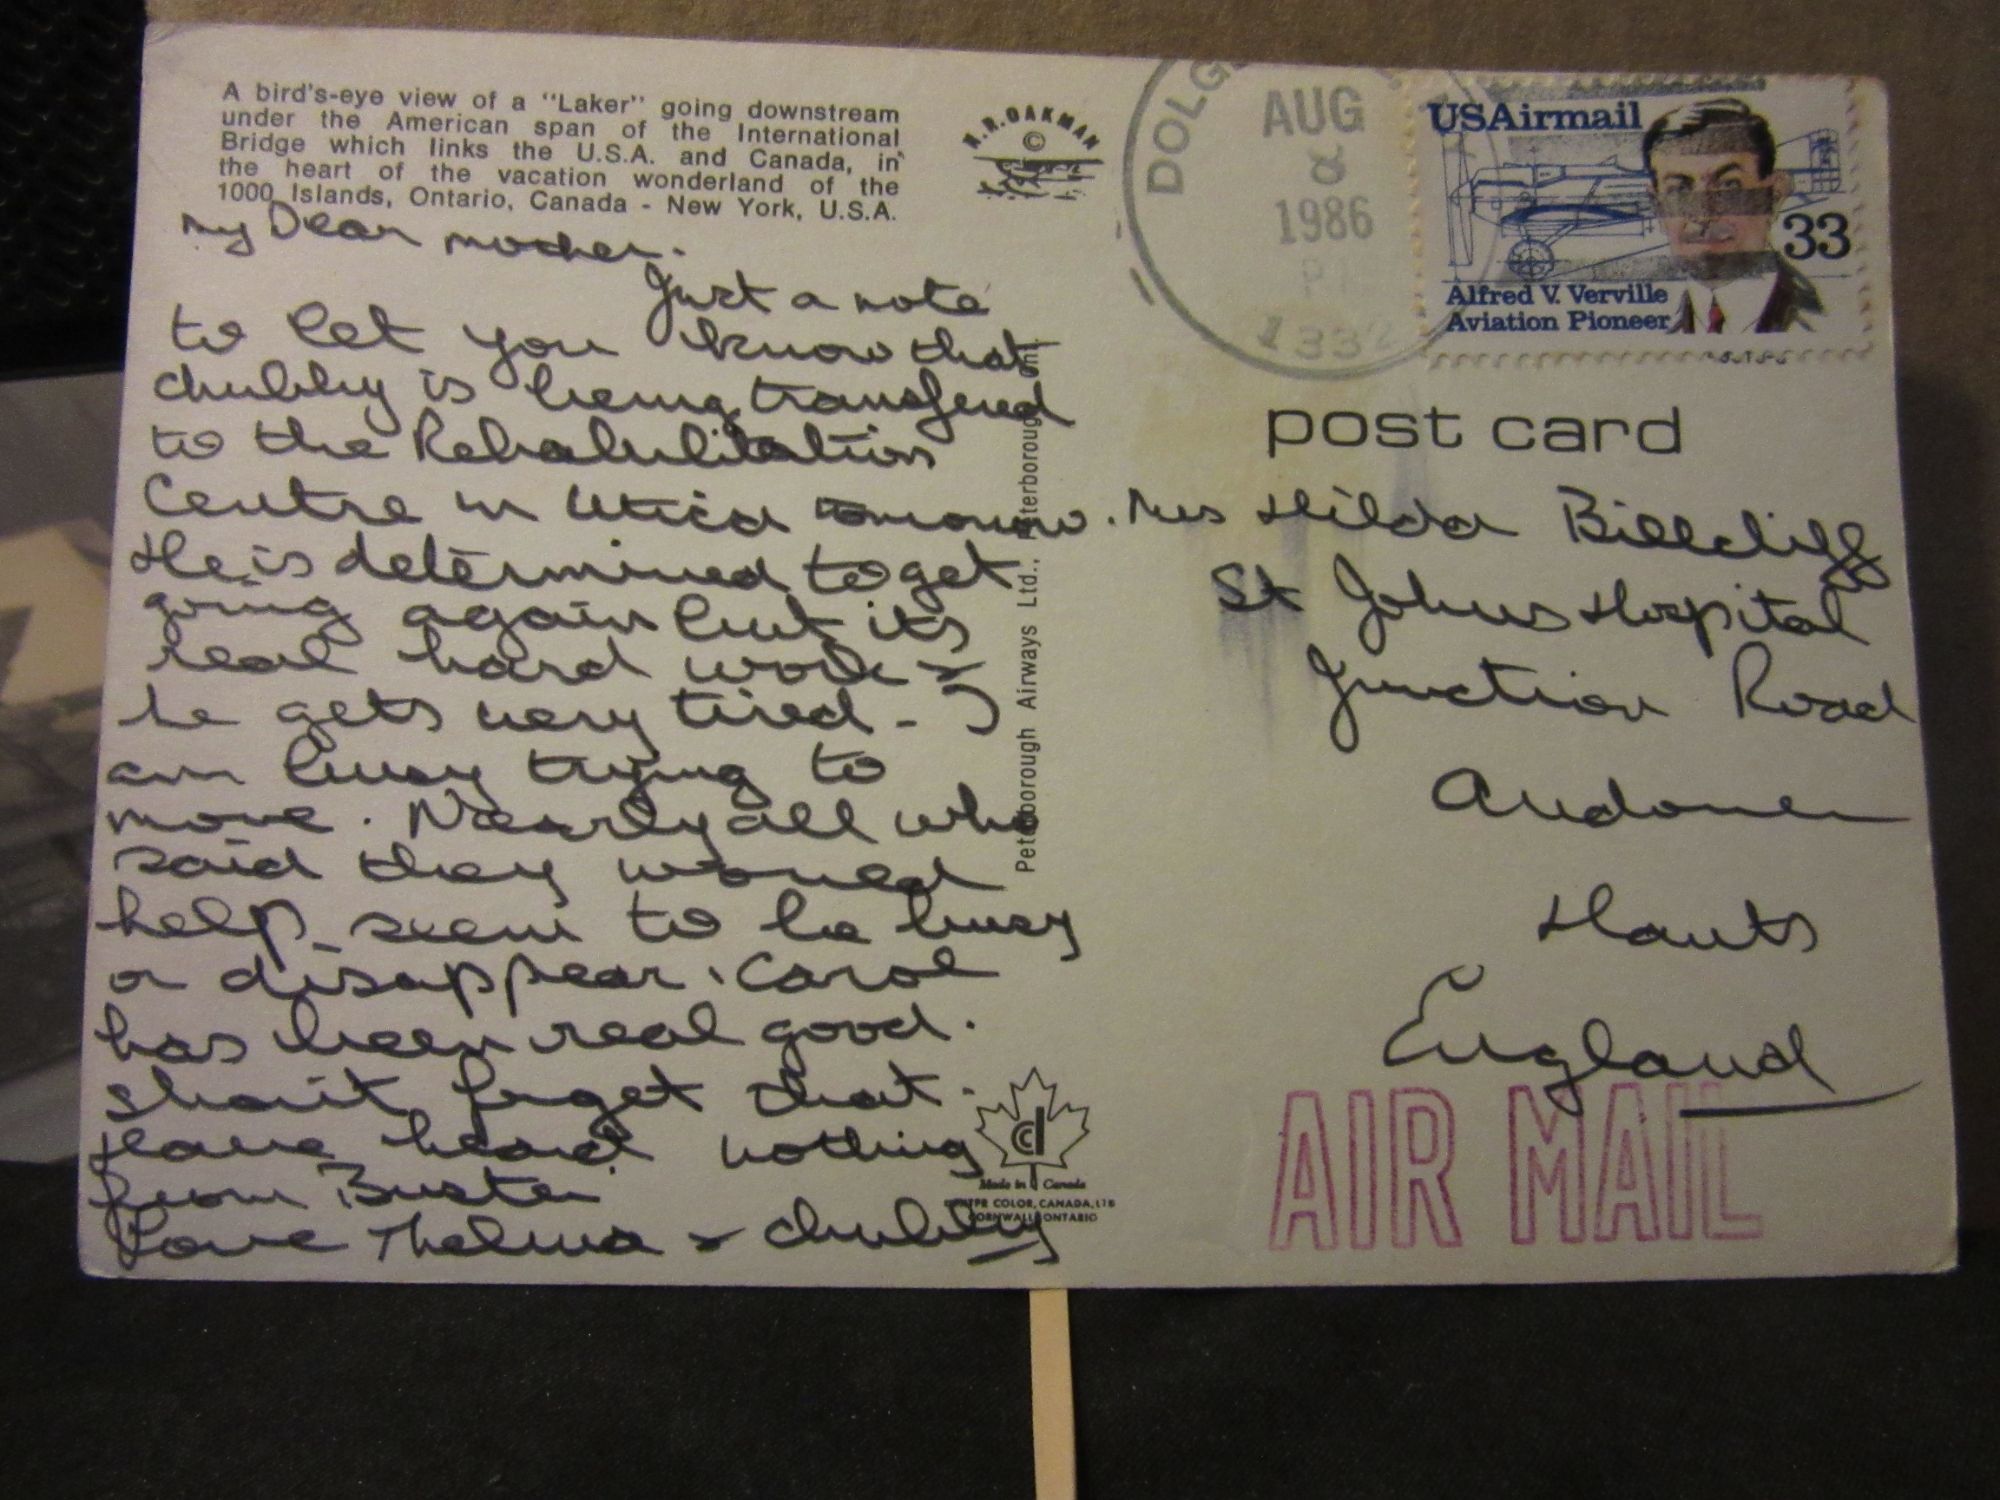 A bird's-eye view of a "Laker" going downstream
under the American span of the International
Bridge which links the U.S.A. and Canada, in
the heart of the vacation wonderland of the
1000 Islands, Ontario, Canada - New York, U.S.A.
H.R. OAKMAN
©
My Dear mother.
Just a note
to let you know that
chubby is being transfered
to the Rehabilitation
Centre in Utica tomorrow.
He is determined to get
going again but its
real hard work &
he gets very tired - I
am busy trying to
move. Nearly all who
said they would
help seem to be busy
or disappear. Carol
has been real good.
shan't forget that.
Have heard nothing
from Buster
Love Thelma & chubby
Peterborough Airways Ltd., Peterborough, Ont.
Made in Canada
COLOR, CANADA, LTD
CORNWALL ONTARIO
DOLG
AUG
8
1986
133
USAirmail
33
Alfred V. Verville
Aviation Pioneer
post card
Mrs Hilda Billcliff
St Johns Hospital
Junction Road
Andover
Hants
England
AIR MAIL